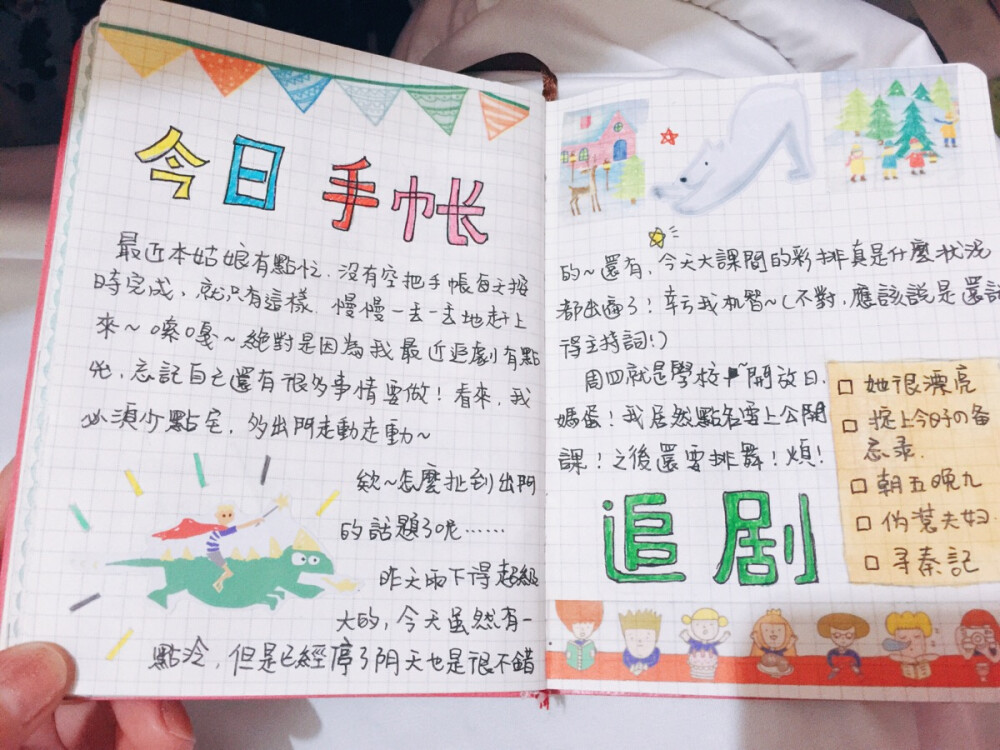 今日 手帐
最近本姑娘有點忙，沒有空把手帳每天按
時完成，就只有這樣，慢慢一丢一丢地赶上
來～嗦嘎～絕對是因為我最近追劇有點
，忘記自己還有很多事情要做！看來，我
必須少點宅，多出門走動走動～
欸～怎麼扯到出門
的話題了呢……
昨天雨下得超級
大的，今天虽然有一
點冷，但是已經停了阴天也是很不錯
的～還有，今天大課間的彩排真是什麼狀況
都出齣了！幸亏我机智～（不對，應該說是還記
得主持詞！）
周四就是學校開放日，
媽蛋！我居然點名要上公開
課！之後還要排舞！煩！
追剧
□ 她很漂亮
□ 掟上今日子の备
忘录.
□ 朝五晚九
□ 伪装夫妇.
□ 寻秦記